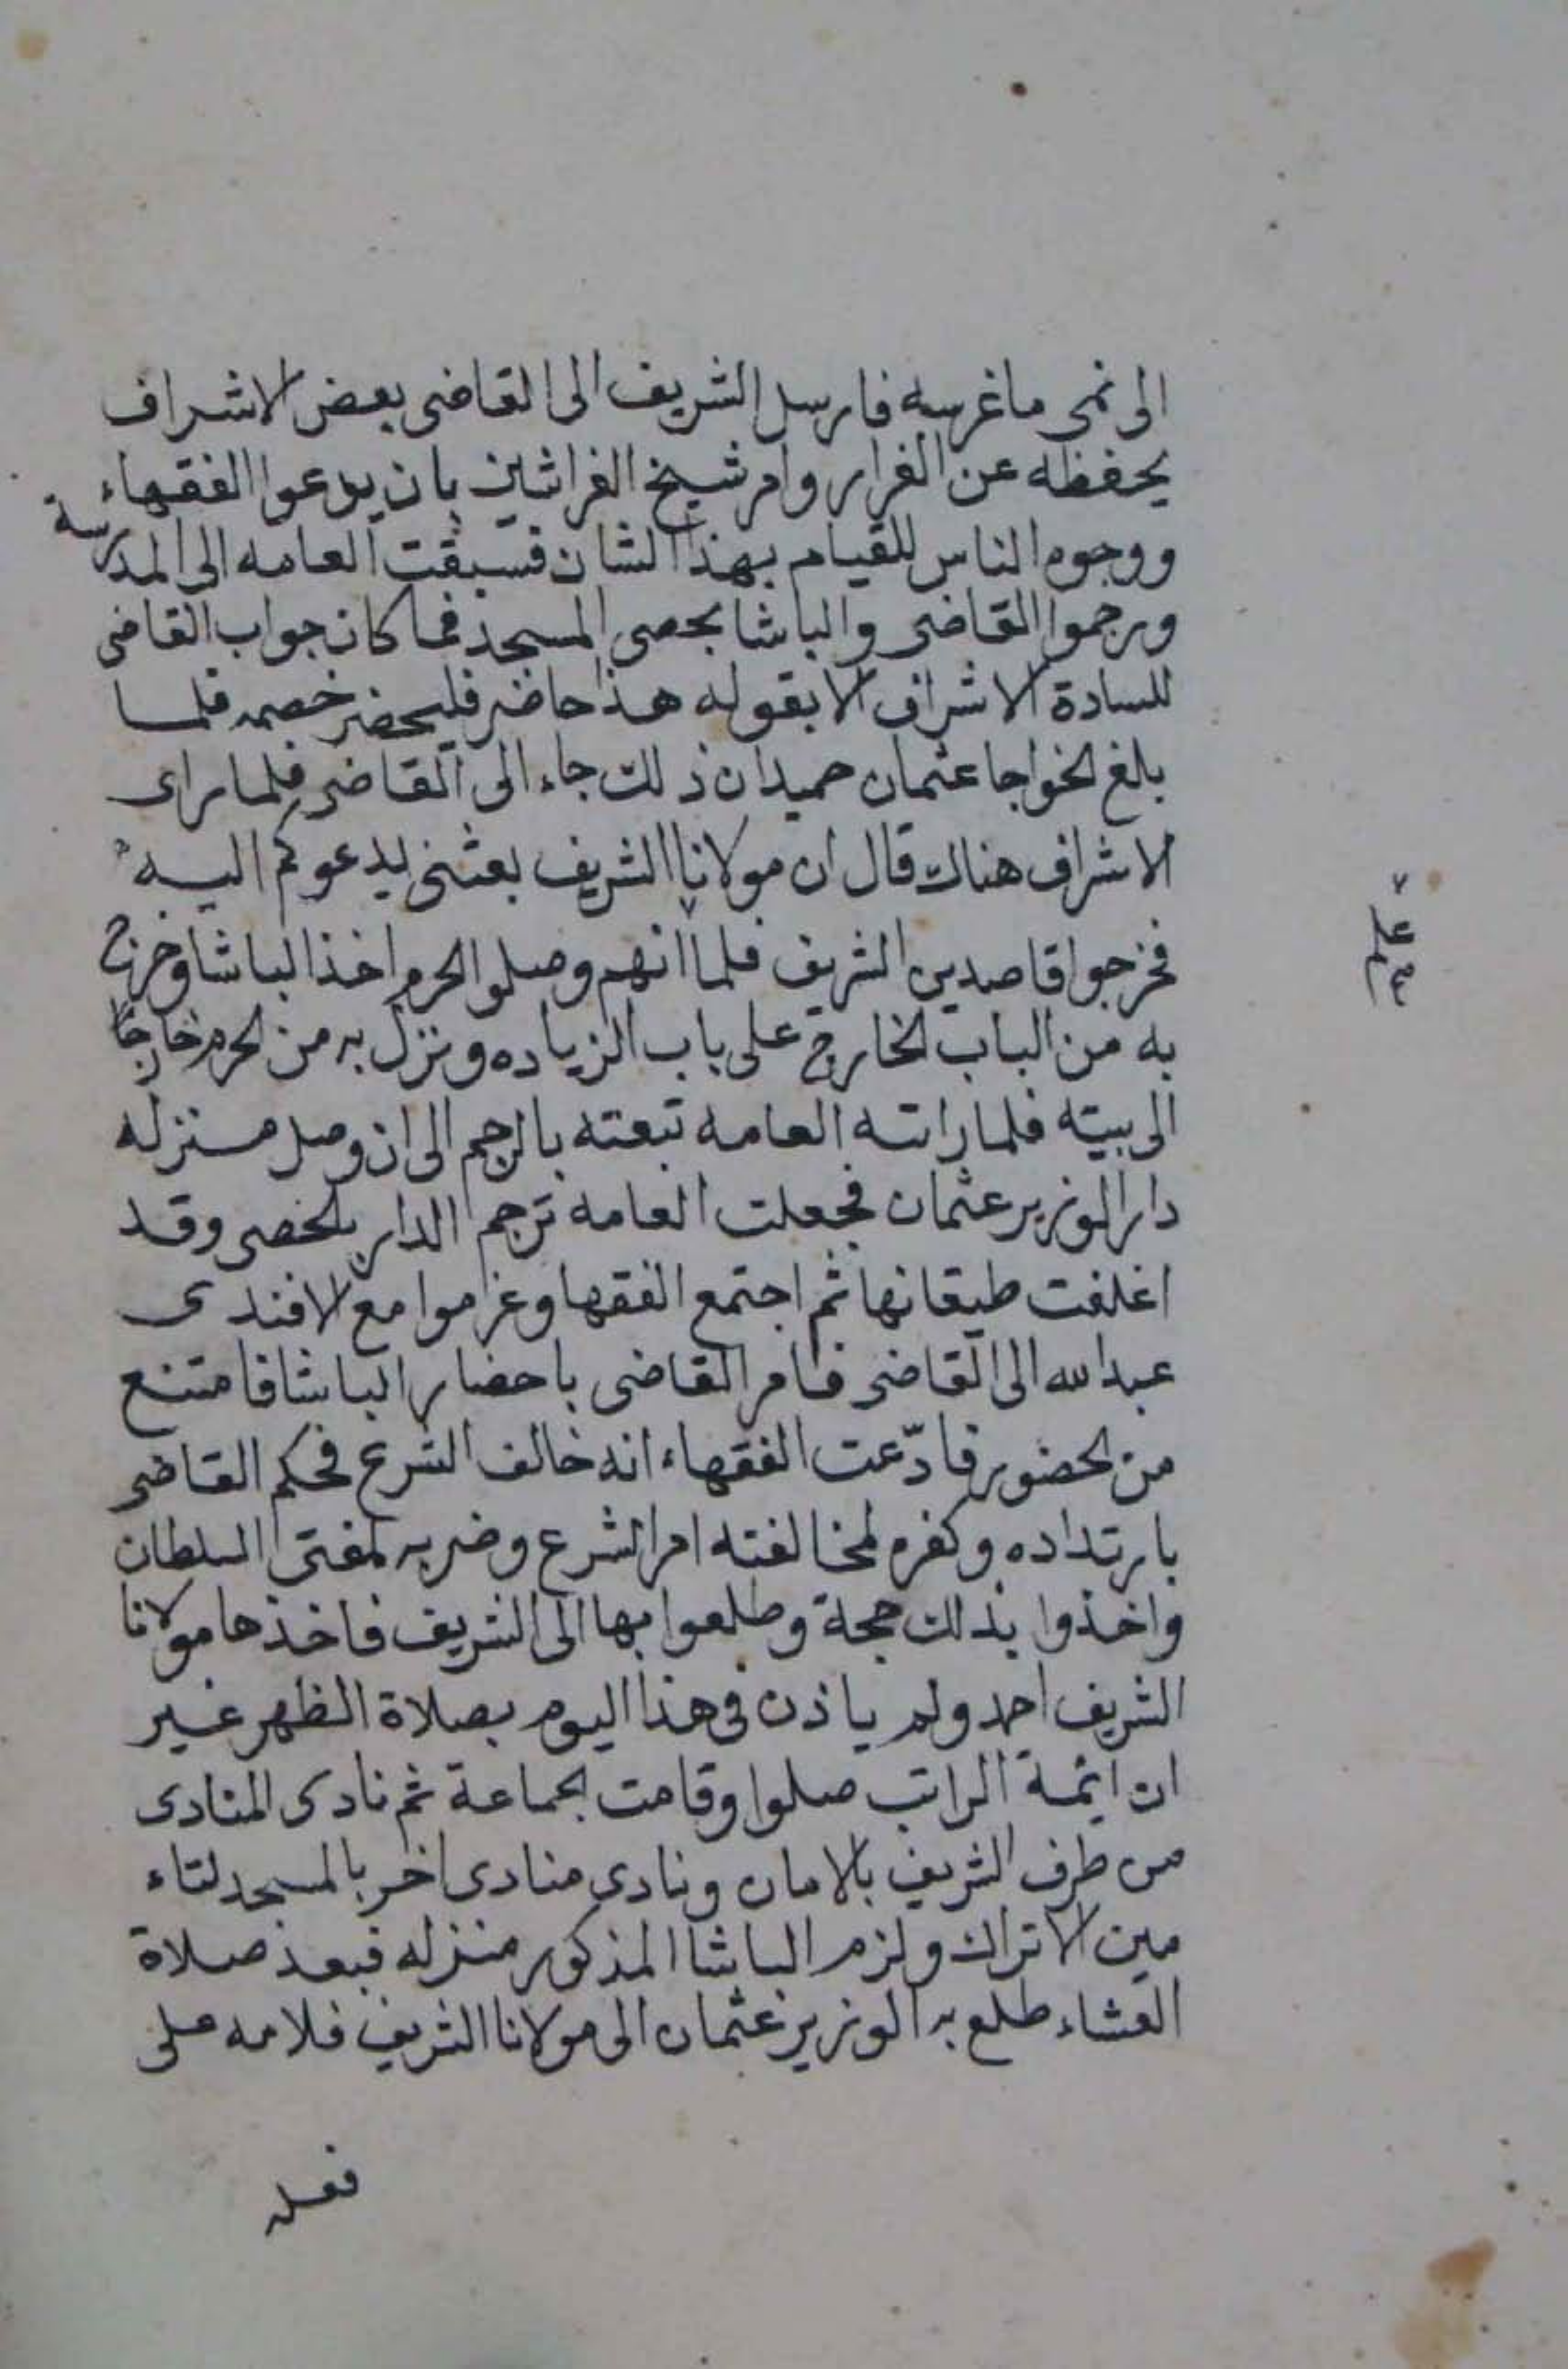 الى نمى ما غرسه فارسل الشريف الى القاضى بعض الاشراف
يحفظه عن الفرار وامر شيخ الفراشين بان يدعوا الفقهاء
ووجوه الناس للقيام بهذا الشان فسبقت العامه الى المدرسة
ورجموا القاضى والباشا بحصى المسجد فما كان جواب القاضى
للسادة الاشراف الا بقوله هذا حاضر فليحضر خصمه فلما
بلغ الخواجا عثمان حميدان ذلك جاء الى القاضى فلما راى
الاشراف هناك قال ان مولانا الشريف بعثنى ليدعوكم اليه
فخرجوا قاصدين الشريف فلما انهم وصلوا الحرم اخذ الباشا وخرج
به من الباب الخارج على باب الزياده ونزل به من الحرم خارجا
الى بيته فلما راته العامه تبعته بالرجم الى ان وصل منزله
دار الوزير عثمان فجعلت العامه ترجم الدار بالحصى وقد
اغلقت طيقانها ثم اجتمع الفقها وغراموا مع الافندى
عبد الله الى القاضى فامر القاضى باحضار الباشا فامتنع
من الحضور فادّعت الفقهاء انه خالف الشرع فحكم القاضى
بارتداده وكفره لمخالفته امر الشرع وضربه لمفتى السلطان
واخذوا بذلك حجة وطلعوا بها الى الشريف فاخذها مولانا
الشريف احمد ولم ياذن فى هذا اليوم بصلاة الظهر غير
ان ائمة الراتب صلوا وقامت الجماعة ثم نادى المنادى
من طرف الشريف بالامان ونادى منادى اخر بالمسجد لتاء
مين الاتراك ولزم الباشا المذكور منزله فبعد صلاة
العشاء طلع به الوزير عثمان الى مولانا الشريف فلامه على
فعله